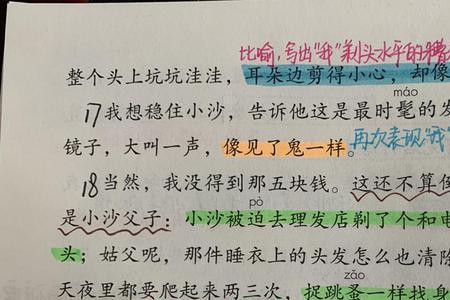 比喻,写出“我”剃头水平的糟
整个头上坑坑洼洼,耳朵边剪得小心,却像
máo
17我想稳住小沙,告诉他这是最时髦的发
镜子,大叫一声,像见了鬼一样。再次表现“我”
18当然,我没得到那五块钱。这还不算倒
pò
是小沙父子:小沙被迫去理发店剃了个和电
头;姑父呢,那件睡衣上的头发怎么也清除
zǎo
天夜里都要爬起来两三次,捉跳蚤一样找身